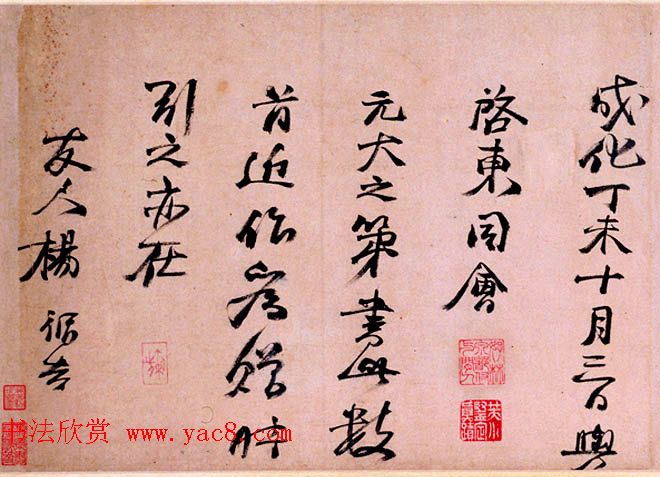 成化丁未十月三日與
啓東同會
元大之第書此數
首近作為贈時
引之亦在
友人楊循吉
书法欣赏 www.yac8.com